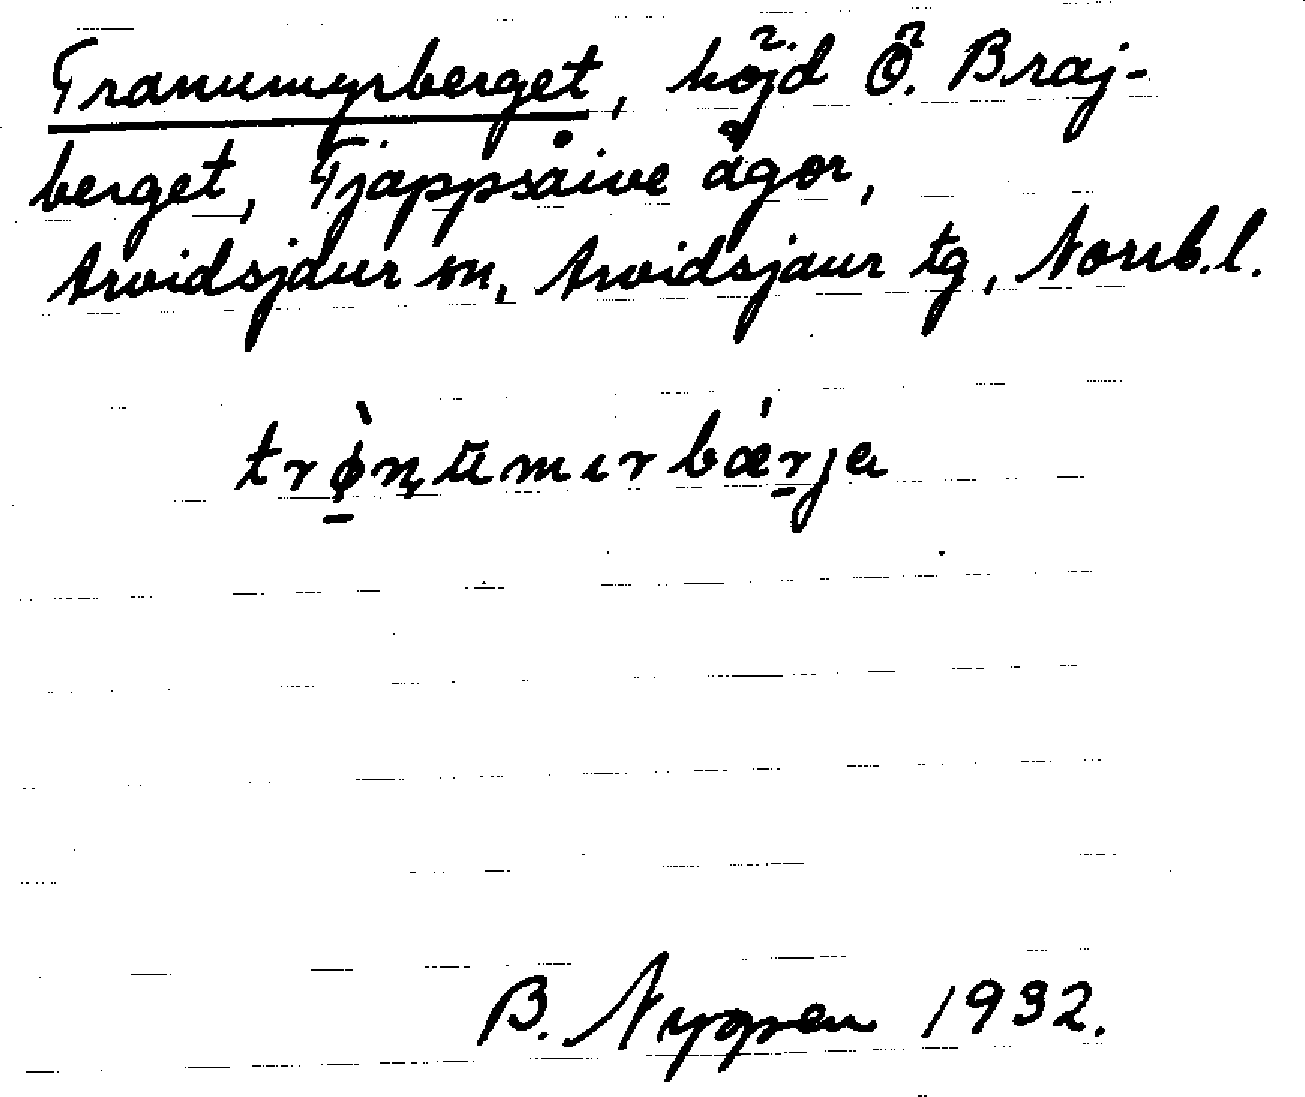 Tranumyrberget, höjd Ö. Braj-
berget, Tjappsåive ägor,
Arvidsjaur sn, Arvidsjaur tg, Norrb.l.
trǫ̀ṇŭmırbǽrja
B. Nyppen 1932.